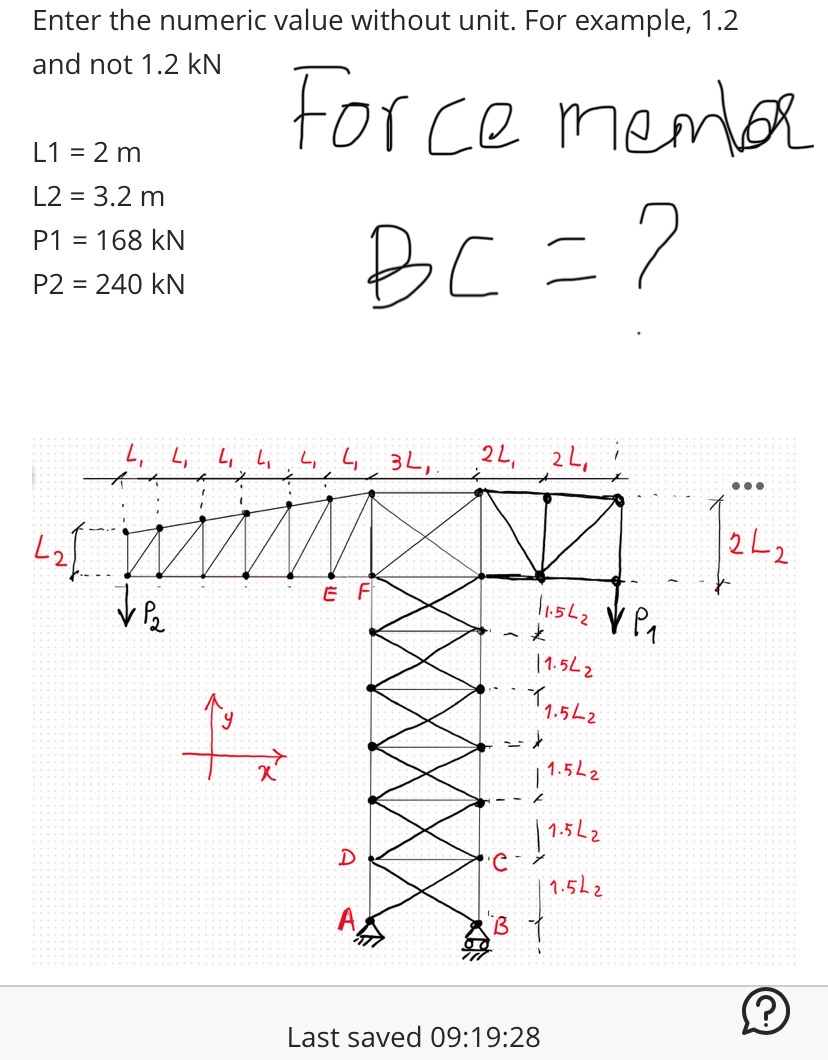 Enter the numeric value without unit. For example, 1.2
and not 1.2 kN
Force member
BC = ?
L1 = 2 m
L2 = 3.2 m
P1 = 168 kN
P2 = 240 kN
L₁ L₁ L₁ L₁ L₁ L₁ 3L₁ 2L₁ 2L₁
L₂
2L₂
E F
P₂
P₁
1.5L₂
1.5L₂
1.5L₂
1.5L₂
1.5L₂
1.5L₂
y
x
D
C
A
B
Last saved 09:19:28
?